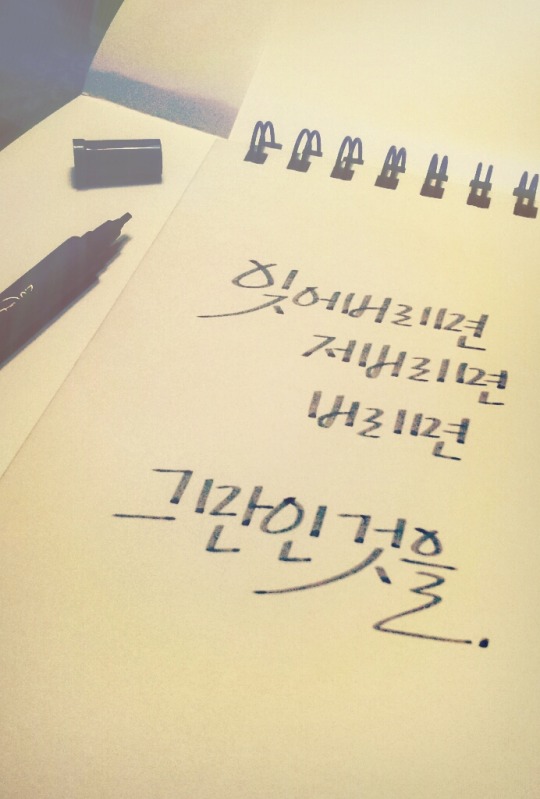 잊어버리면
저버리면
버리면
그만인것을.